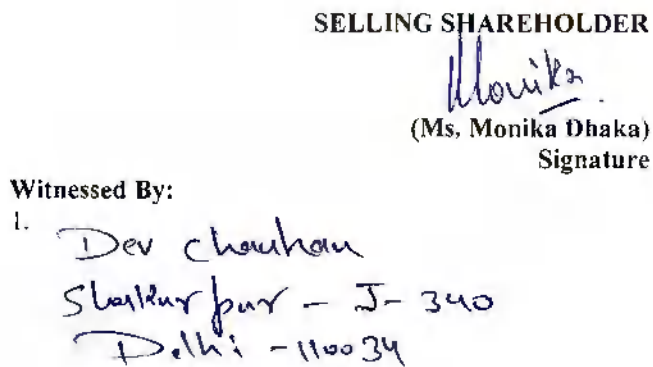 SELLING SHAREHOLDER
Monika
(Ms. Monika Dhaka)
Signature
Witnessed By:
1.
Dev Chauhan
Shakurpur - J- 340
Delhi - 110034